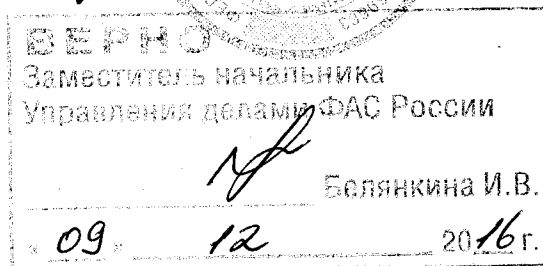 ВЕРНО
Заместитель начальника
Управления делами ФАС России
Белянкина И.В.
« 09 » 12 2016 г.